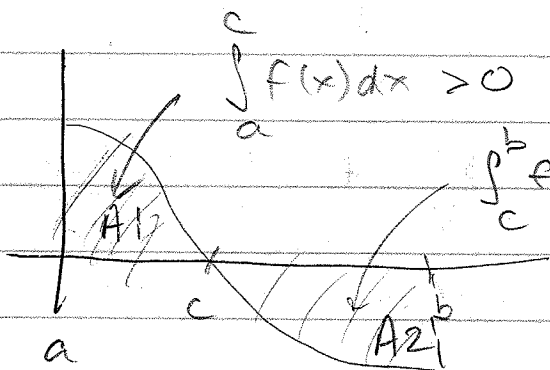 ∫_a^c f(x)dx > 0
∫_c^b f
A1
c
b
A2
a